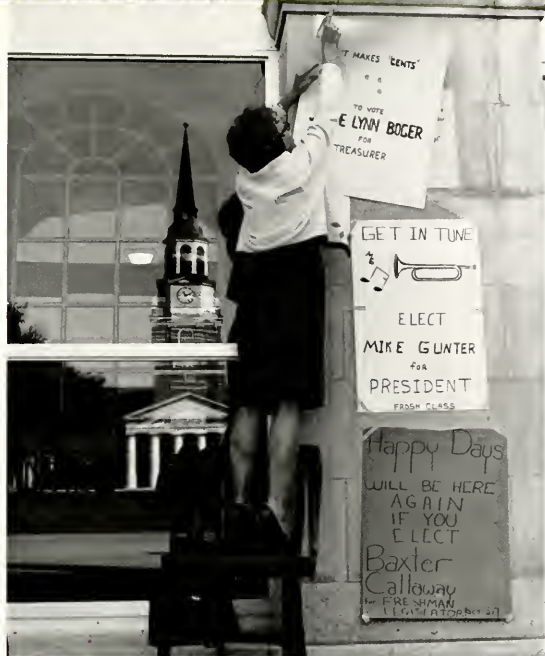 IT MAKES "CENTS"
TO VOTE
E LYNN BOGER
FOR
TREASURER
GET IN TUNE
ELECT
MIKE GUNTER
for
PRESIDENT
FROSH CLASS
Happy Days
WILL BE HERE
AGAIN
IF YOU
ELECT
Baxter
Callaway
for FRESHMAN
LEGISLATOR